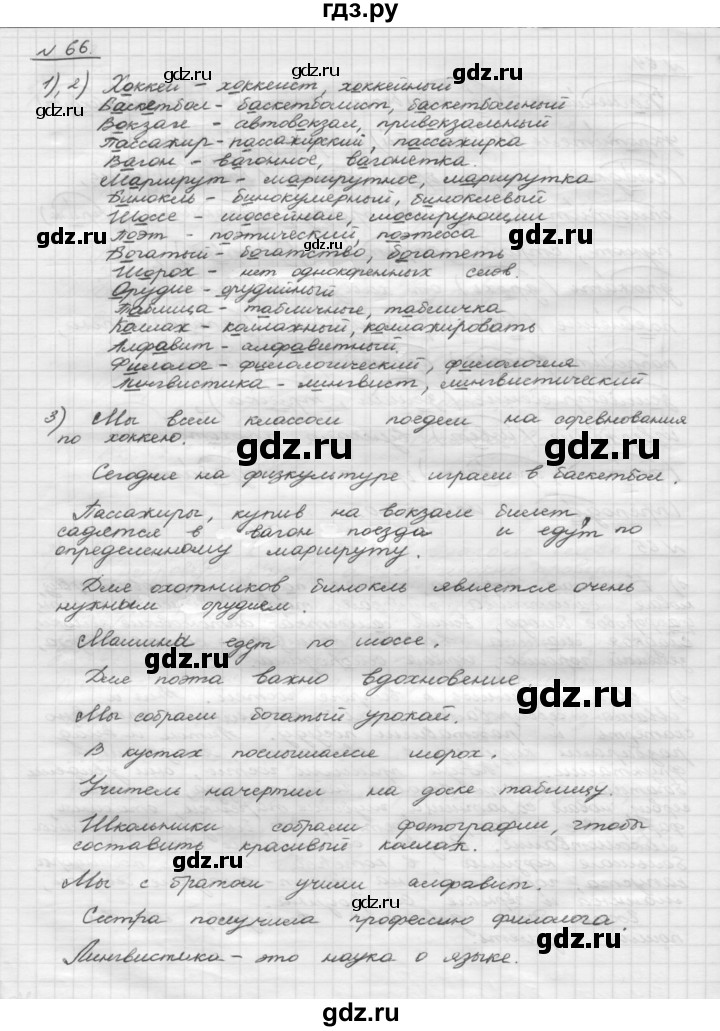 гдз.ру
№ 66.
1), 2) Хоккей – хоккеист, хоккейный
Баскетбол – баскетболист, баскетбольный
Вокзале – автовокзал, привокзальный
Пассажир – пассажирский, пассажирка
Вагон – вагонное, вагонетка.
Маршрут – маршрутное, маршрутка
Бинокль – бинокулярный, биноклевый
Шоссе – шоссейная, шоссирующии
Поэт – поэтический, поэтесса
Богатый – богатство, богатеть
Шорох – нет однокоренных слов.
Орудие – орудийный
Таблица – табличные, табличка
Коллаж – коллажный, коллажировать
Алфавит – алфавитный.
Филолог – филологический, филология
Лингвистика – лингвист, лингвистический
3) Мы всем классом поедем на соревнования
по хоккею.
Сегодня на физкультуре играли в баскетбол.
Пассажиры, купив на вокзале билет,
садятся в вагон поезда и едут по
определенному маршруту.
Для охотников бинокль является очень
нужным орудием.
Машины едут по шоссе.
Для поэта важно вдохновение.
Мы собрали богатый урожай.
В кустах послышался шорох.
Учитель начертил на доске таблицу.
Школьники собрали фотографии, чтобы
составить красивый коллаж.
Мы с братом учили алфавит.
Сестра получила профессию филолога.
Лингвистика – это наука о языке.
gdz.ru
gdz.ru
gdz.ru
gdz.ru
gdz.ru
gdz.ru
gdz.ru
gdz.ru
gdz.ru
gdz.ru
gdz.ru
gdz.ru
gdz.ru